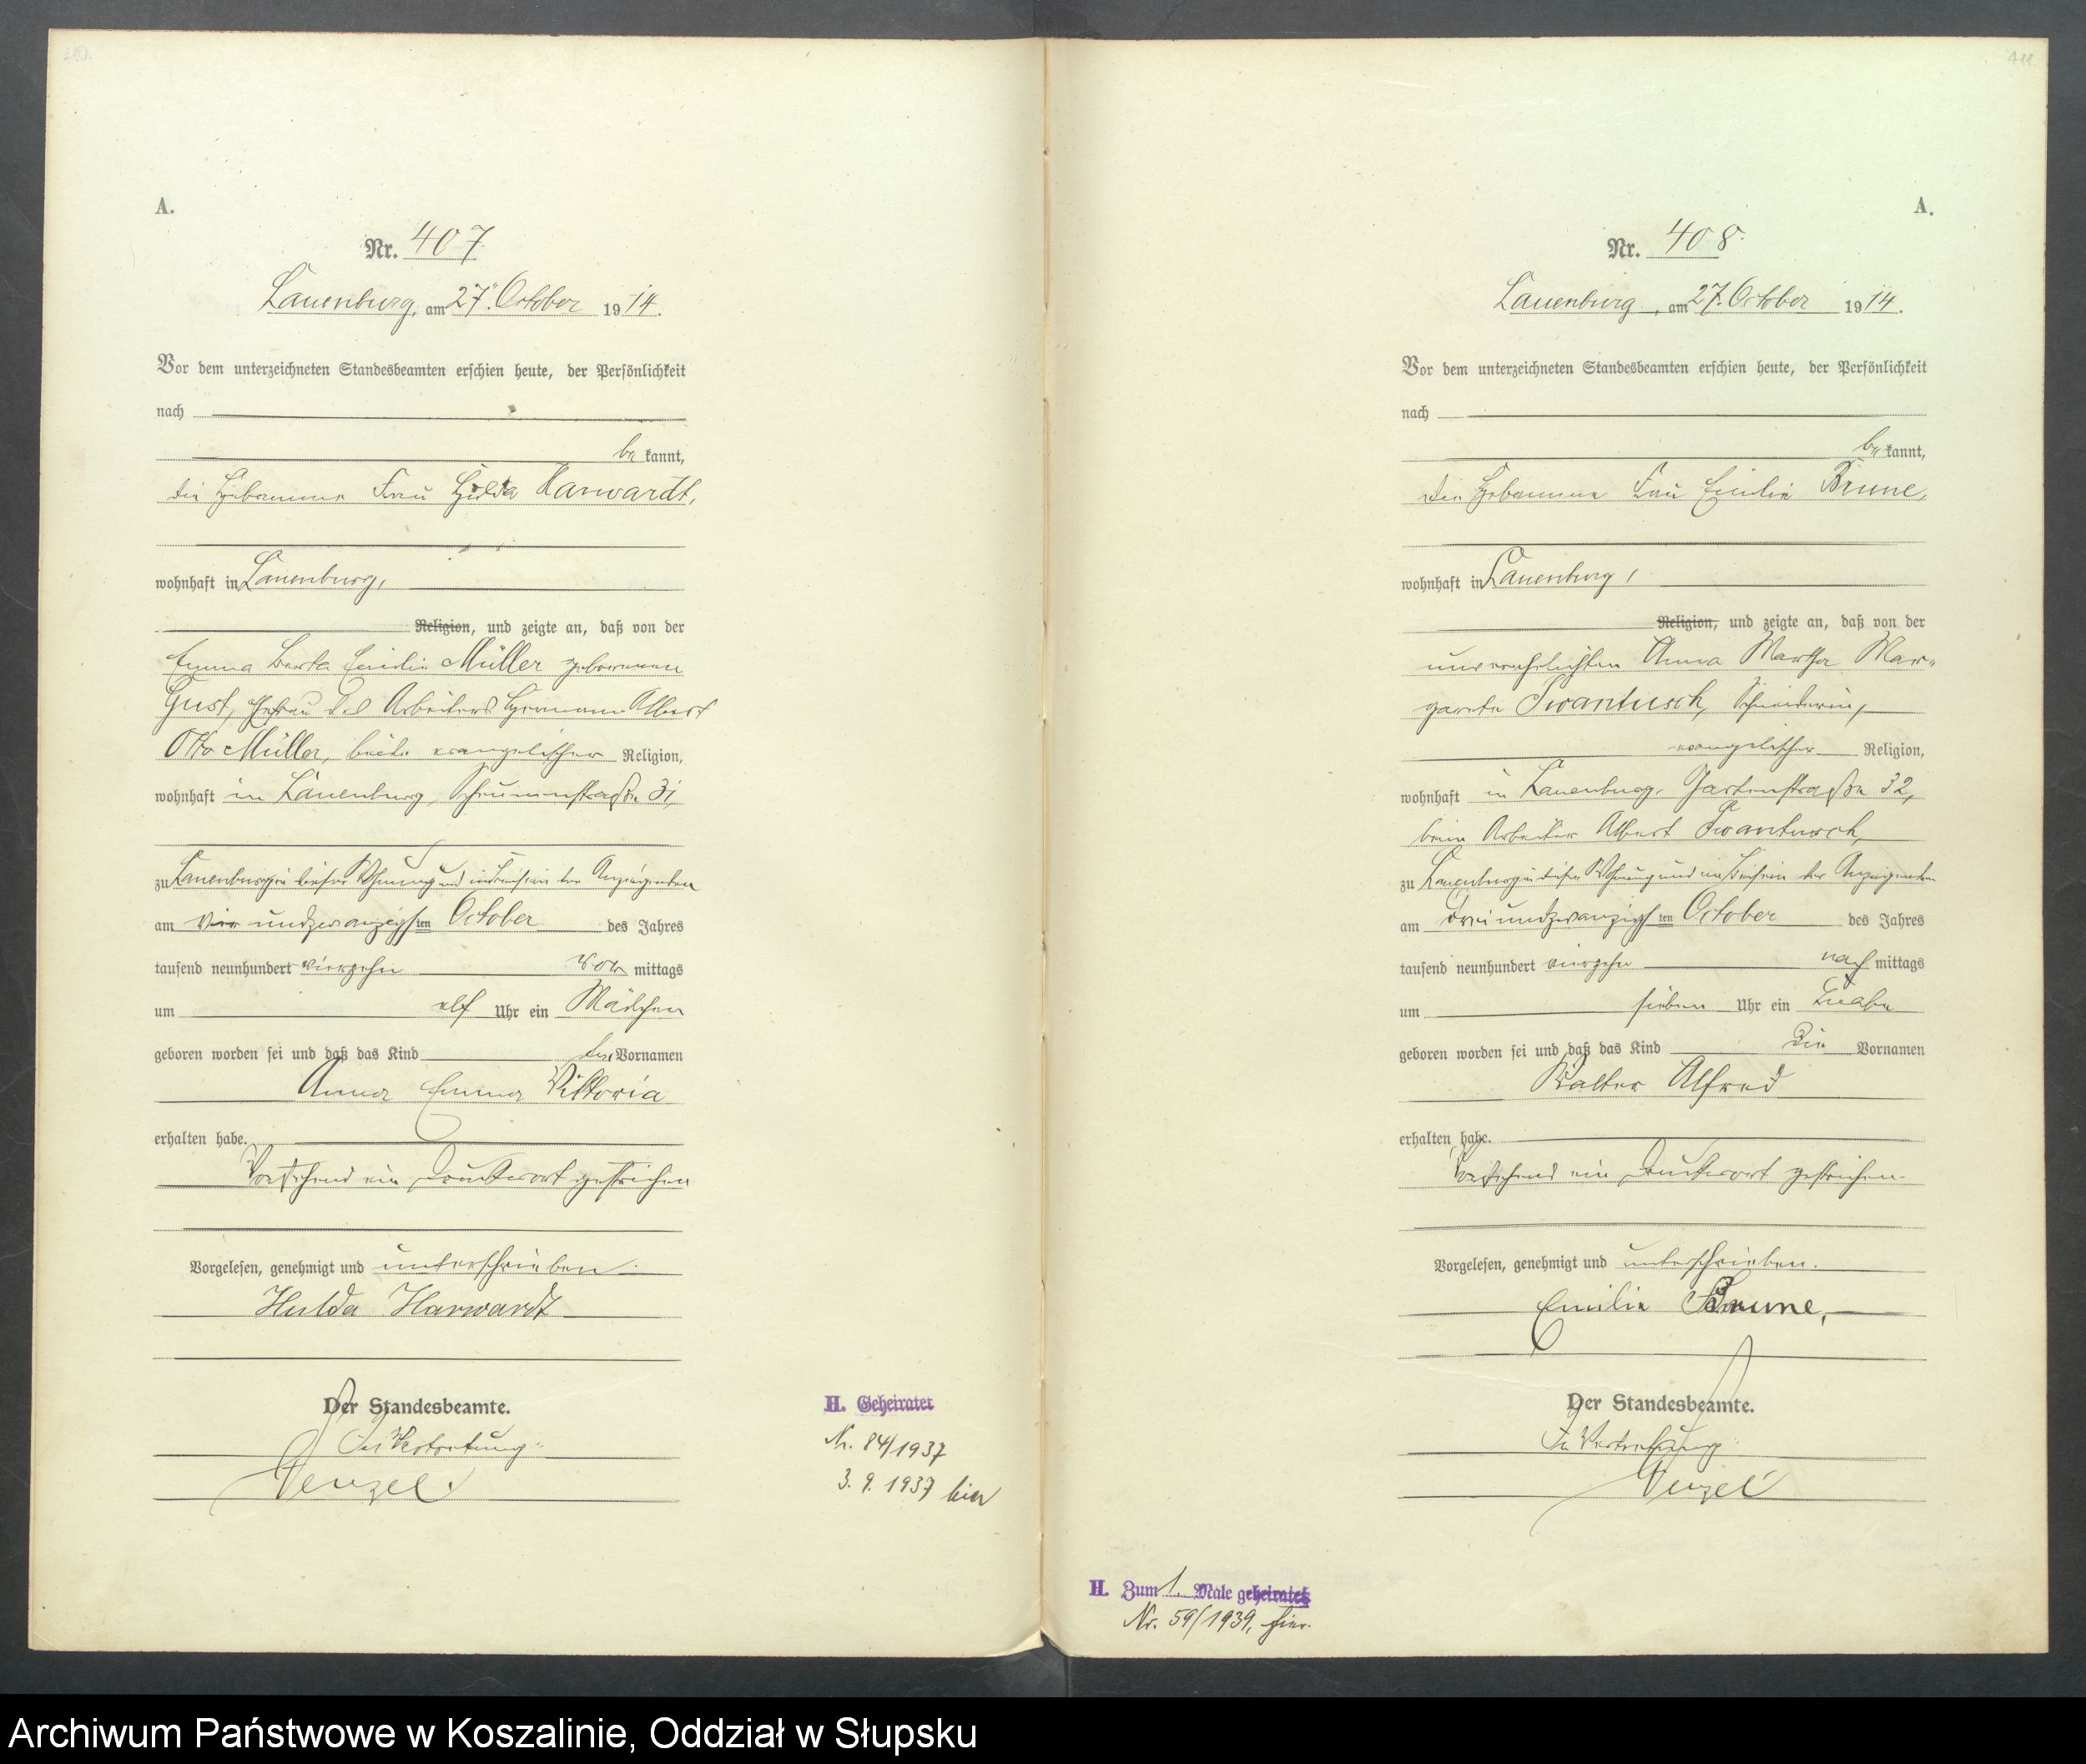 410.
A.
Nr. 407
Lauenburg, am 27. October 1914.
Vor dem unterzeichneten Standesbeamten erschien heute, der Persönlichkeit
nach
be kannt,
die Hebamme Frau Hulda Harwardt,
wohnhaft in Lauenburg,
Religion, und zeigte an, daß von der
Emma Berta Emilie Müller geborenen
Gust, Ehefrau des Arbeiters Hermann Albert
Otto Müller, beide evangelischer Religion,
wohnhaft in Lauenburg, Scheunenstraße 31,
zu Lauenburg in dieser Wohnung und in Beisein der Anzeigenden
am vier undzwanzigsten October des Jahres
tausend neunhundert vierzehn vor mittags
um elf Uhr ein Mädchen
geboren worden sei und daß das Kind die Vornamen
Anna Emma Viktoria
erhalten habe.
Vorstehend ein Druckwort gestrichen
Vorgelesen, genehmigt und unterschrieben.
Hulda Harwardt
Der Standesbeamte.
In Vertretung.
Wenzel.
H. Geheiratet
Nr. 84/1937
3. 9. 1937 hier
411.
A.
Nr. 408.
Lauenburg, am 27. October 1914.
Vor dem unterzeichneten Standesbeamten erschien heute, der Persönlichkeit
nach
be kannt,
die Hebamme Frau Emilie Brune,
wohnhaft in Lauenburg,
Religion, und zeigte an, daß von der
unverehelichten Anna Martha Mar-
garete Swantusch, Schneiderin,
evangelischer Religion,
wohnhaft in Lauenburg, Gartenstraße 32,
beim Arbeiter Albert Swantusch,
zu Lauenburg in dieser Wohnung und im Beisein der Anzeigenden
am drei undzwanzigsten October des Jahres
tausend neunhundert vierzehn nach mittags
um sieben Uhr ein Knabe
geboren worden sei und daß das Kind die Vornamen
Walter Alfred
erhalten habe.
Vorstehend ein Druckwort gestrichen.
Vorgelesen, genehmigt und unterschrieben.
Emilie Brune,
Der Standesbeamte.
In Vertretung.
Wenzel
H. Zum 1. Male geheiratet
Nr. 59/1939, hier.
Archiwum Państwowe w Koszalinie, Oddział w Słupsku